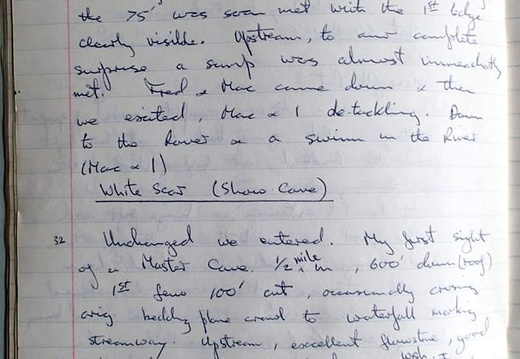 the 75' was soon met with the 1st ledge
clearly visible. Upstream, to our complete
surprise a sump was almost immediately
met. Fred & Mac came down & then
we exited, Mac & I detackling. Down
to the Rover & a swim in the River
(Mac & I)
White Scar (Show Cave)
32 Unchanged we entered. My first sight
of a Master Cave. 1/2 mile in, 600' down (roof)
1st few 100' cut, occasionally crossing
orig bedding plane crawl to waterfall marking
streamway. Upstream, excellent flowstone, good